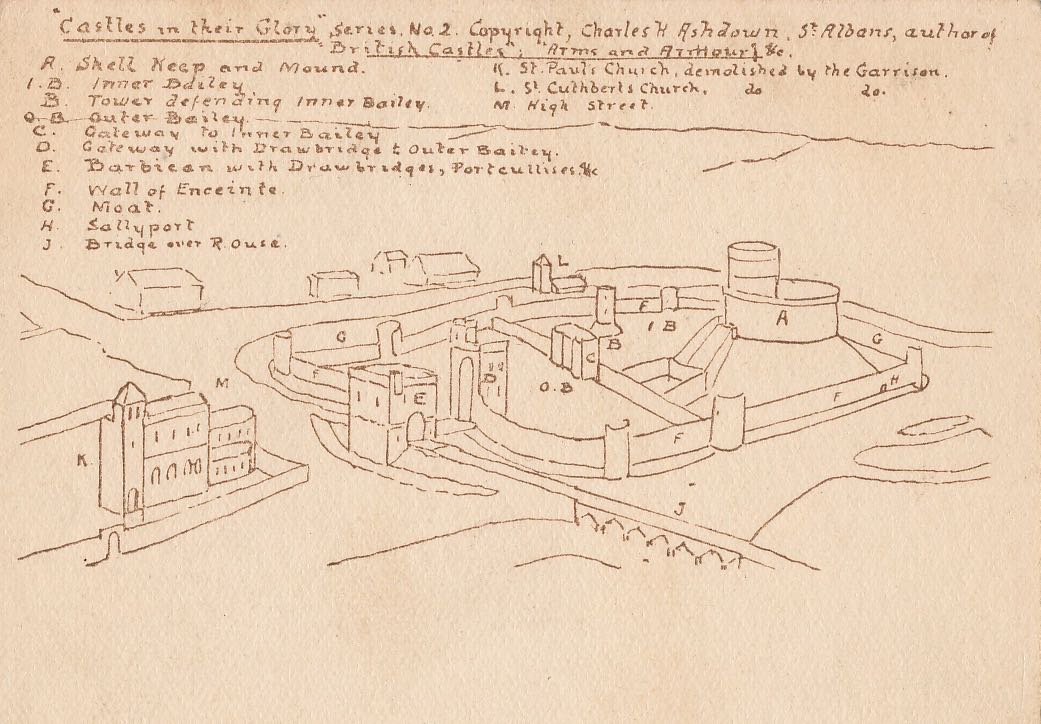 "Castles in their Glory" Series. No 2. Copyright, Charles H Ashdown, St Albans, author of
"British Castles"; "Arms and Armour" &c.
A. Shell Keep and Mound.
I.B. Inner Bailey
B. Tower defending Inner Bailey.
O.B. Outer Bailey.
C. Gateway to Inner Bailey
D. Gateway with Drawbridge to Outer Bailey.
E. Barbican with Drawbridges, Portcullises, &c
F. Wall of Enceinte.
G. Moat.
H. Sallyport
J. Bridge over R. Ouse.
K. St. Paul's Church, demolished by the Garrison.
L. St. Cuthbert's Church, do do.
M. High Street.
L
F
I B
A
G
B
G
C
M
F
E
D
O.B
H
F
F
K
J